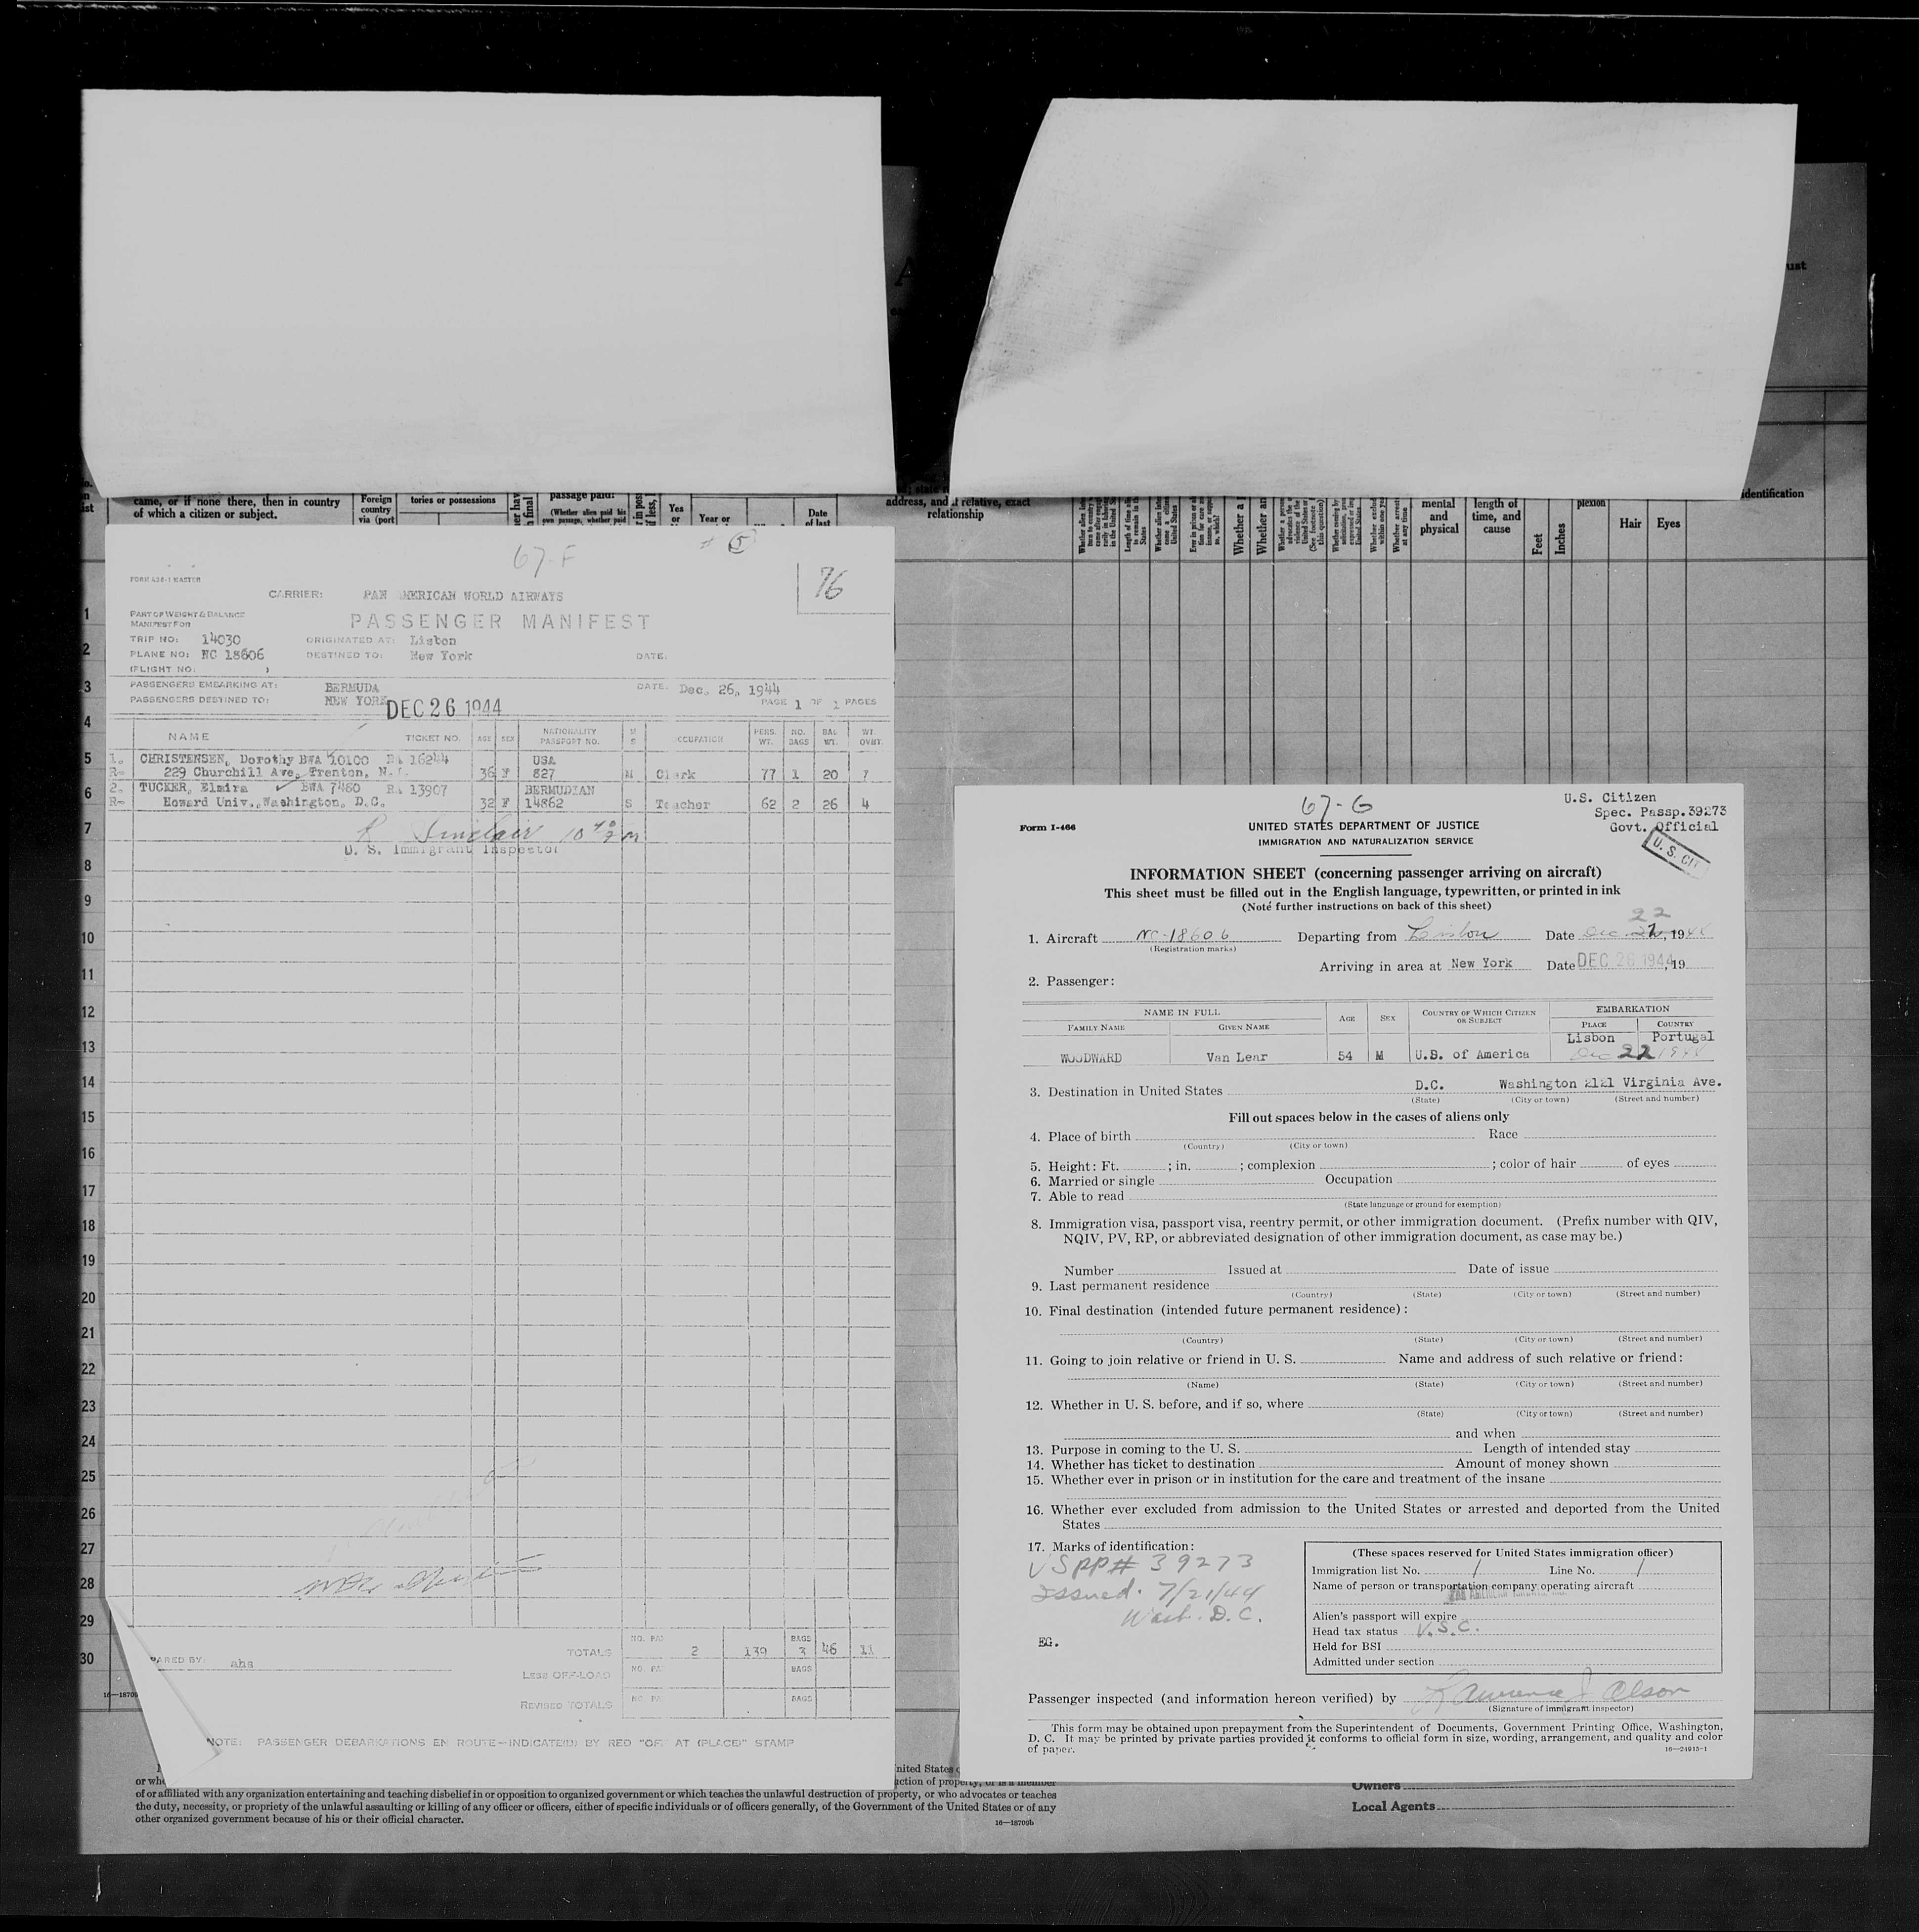 came, or if none there, then in country
of which a citizen or subject.
Foreign
country
via (port
tories or possessions
passage paid?
(Whether alien paid his
own passage, whether paid
Yes
or
Year or
Date
of last
address, and if relative, exact
relationship
Whether a
Whether an
mental
and
physical
length of
time, and
cause
Feet
Inches
plexion
Hair
Eyes
identification
67-F
# 5
76
FORM
MASTER
CARRIER: PAN AMERICAN WORLD AIRWAYS
PART OF WEIGHT & BALANCE
MANIFEST FOR
PASSENGER MANIFEST
TRIP NO: 14030
ORIGINATED AT: Lisbon
PLANE NO: NC 18606
DESTINED TO: New York
DATE:
(FLIGHT NO. )
PASSENGERS EMBARKING AT: BERMUDA
DATE: Dec. 26, 1944
PASSENGERS DESTINED TO: NEW YORK
DEC 26 1944
PAGE 1 OF 1 PAGES
NAME TICKET NO. AGE SEX NATIONALITY PASSPORT NO. M S OCCUPATION PERS. WT. NO. BAGS BAG WT. WT. OVHT.
1. CHRISTENSEN, Dorothy BWA 10100 16244 USA
R- 229 Churchill Ave, Trenton, N.J. 36 F 827 M Clerk 77 1 20 7
2. TUCKER, Elmira BWA 7480 13907 BERMUDIAN
R- Howard Univ., Washington, D.C. 32 F 14862 S Teacher 62 2 26 4
R Sinclair
U. S. Immigrant Inspector
1
2
3
4
5
6
7
8
9
10
11
12
13
14
15
16
17
18
19
20
21
22
23
24
25
26
27
28
29
30
TOTALS NO. PA 2 139 BAGS 3 46 11
PARED BY: ahs
LESS OFF-LOAD NO. PA BAGS
REVISED TOTALS NO. PA BAGS
16—18709
NOTE: PASSENGER DEBARKATIONS EN ROUTE—INDICATE(D) BY RED "OFF AT (PLACE)" STAMP
67-G
U.S. Citizen
Spec. Passp. 39273
Govt. Official
U. S. CIT
Form I-466
UNITED STATES DEPARTMENT OF JUSTICE
IMMIGRATION AND NATURALIZATION SERVICE
INFORMATION SHEET (concerning passenger arriving on aircraft)
This sheet must be filled out in the English language, typewritten, or printed in ink
(Note further instructions on back of this sheet)
22
1. Aircraft NC-18606 Departing from Lisbon Date Dec. 21, 1944
(Registration marks)
Arriving in area at New York Date DEC 26 1944, 19
2. Passenger:
NAME IN FULL
FAMILY NAME GIVEN NAME AGE SEX COUNTRY OF WHICH CITIZEN OR SUBJECT EMBARKATION PLACE COUNTRY
Lisbon Portugal
WOODWARD Van Lear 54 M U.S. of America Dec 22 1944
3. Destination in United States D.C. Washington 2121 Virginia Ave.
(State) (City or town) (Street and number)
Fill out spaces below in the cases of aliens only
4. Place of birth Race
(Country) (City or town)
5. Height: Ft. ; in. ; complexion ; color of hair of eyes
6. Married or single Occupation
7. Able to read
(State language or ground for exemption)
8. Immigration visa, passport visa, reentry permit, or other immigration document. (Prefix number with QIV,
NQIV, PV, RP, or abbreviated designation of other immigration document, as case may be.)
Number Issued at Date of issue
9. Last permanent residence
(Country) (State) (City or town) (Street and number)
10. Final destination (intended future permanent residence):
(Country) (State) (City or town) (Street and number)
11. Going to join relative or friend in U. S. Name and address of such relative or friend:
(Name) (State) (City or town) (Street and number)
12. Whether in U. S. before, and if so, where
(State) (City or town) (Street and number)
and when
13. Purpose in coming to the U. S. Length of intended stay
14. Whether has ticket to destination Amount of money shown
15. Whether ever in prison or in institution for the care and treatment of the insane
16. Whether ever excluded from admission to the United States or arrested and deported from the United
States
17. Marks of identification:
USPP# 39273
Issued. 7/21/44
Wash. D.C.
EG.
(These spaces reserved for United States immigration officer)
Immigration list No. 1 Line No. 1
Name of person or transportation company operating aircraft
Alien's passport will expire
Head tax status U.S.C.
Held for BSI
Admitted under section
Passenger inspected (and information hereon verified) by Lawrence J Olson
(Signature of immigrant inspector)
This form may be obtained upon prepayment from the Superintendent of Documents, Government Printing Office, Washington,
D. C. It may be printed by private parties provided it conforms to official form in size, wording, arrangement, and quality and color
of paper.
16—24915-1
nited States
or who
uction of property, or is a member
of or affiliated with any organization entertaining and teaching disbelief in or opposition to organized government or which teaches the unlawful destruction of property, or who advocates or teaches
the duty, necessity, or propriety of the unlawful assaulting or killing of any officer or officers, either of specific individuals or of officers generally, of the Government of the United States or of any
other organized government because of his or their official character.
16—18709b
Owners
Local Agents